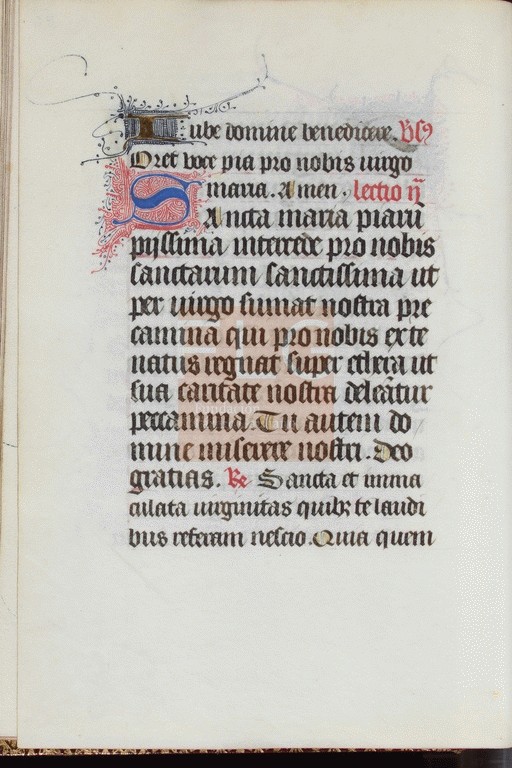 Iube domine benedicere. Bn̄s
Oret voce pia pro nobis uirgo
maria. Amen. lectio ii
Sancta maria piarū
pijssima intercede pro nobis
sanctarum sanctissima ut
per uirgo sumat nostra pre
camina qui pro nobis ex te
natus regnat super ethera ut
sua caritate nostra deleātur
peccamina. Tu autem do
mine miserere nostri. Deo
gratias. Re Sancta et imma
culata uirginitas quibz te laudi
bus referam nescio. Quia quem
FLG